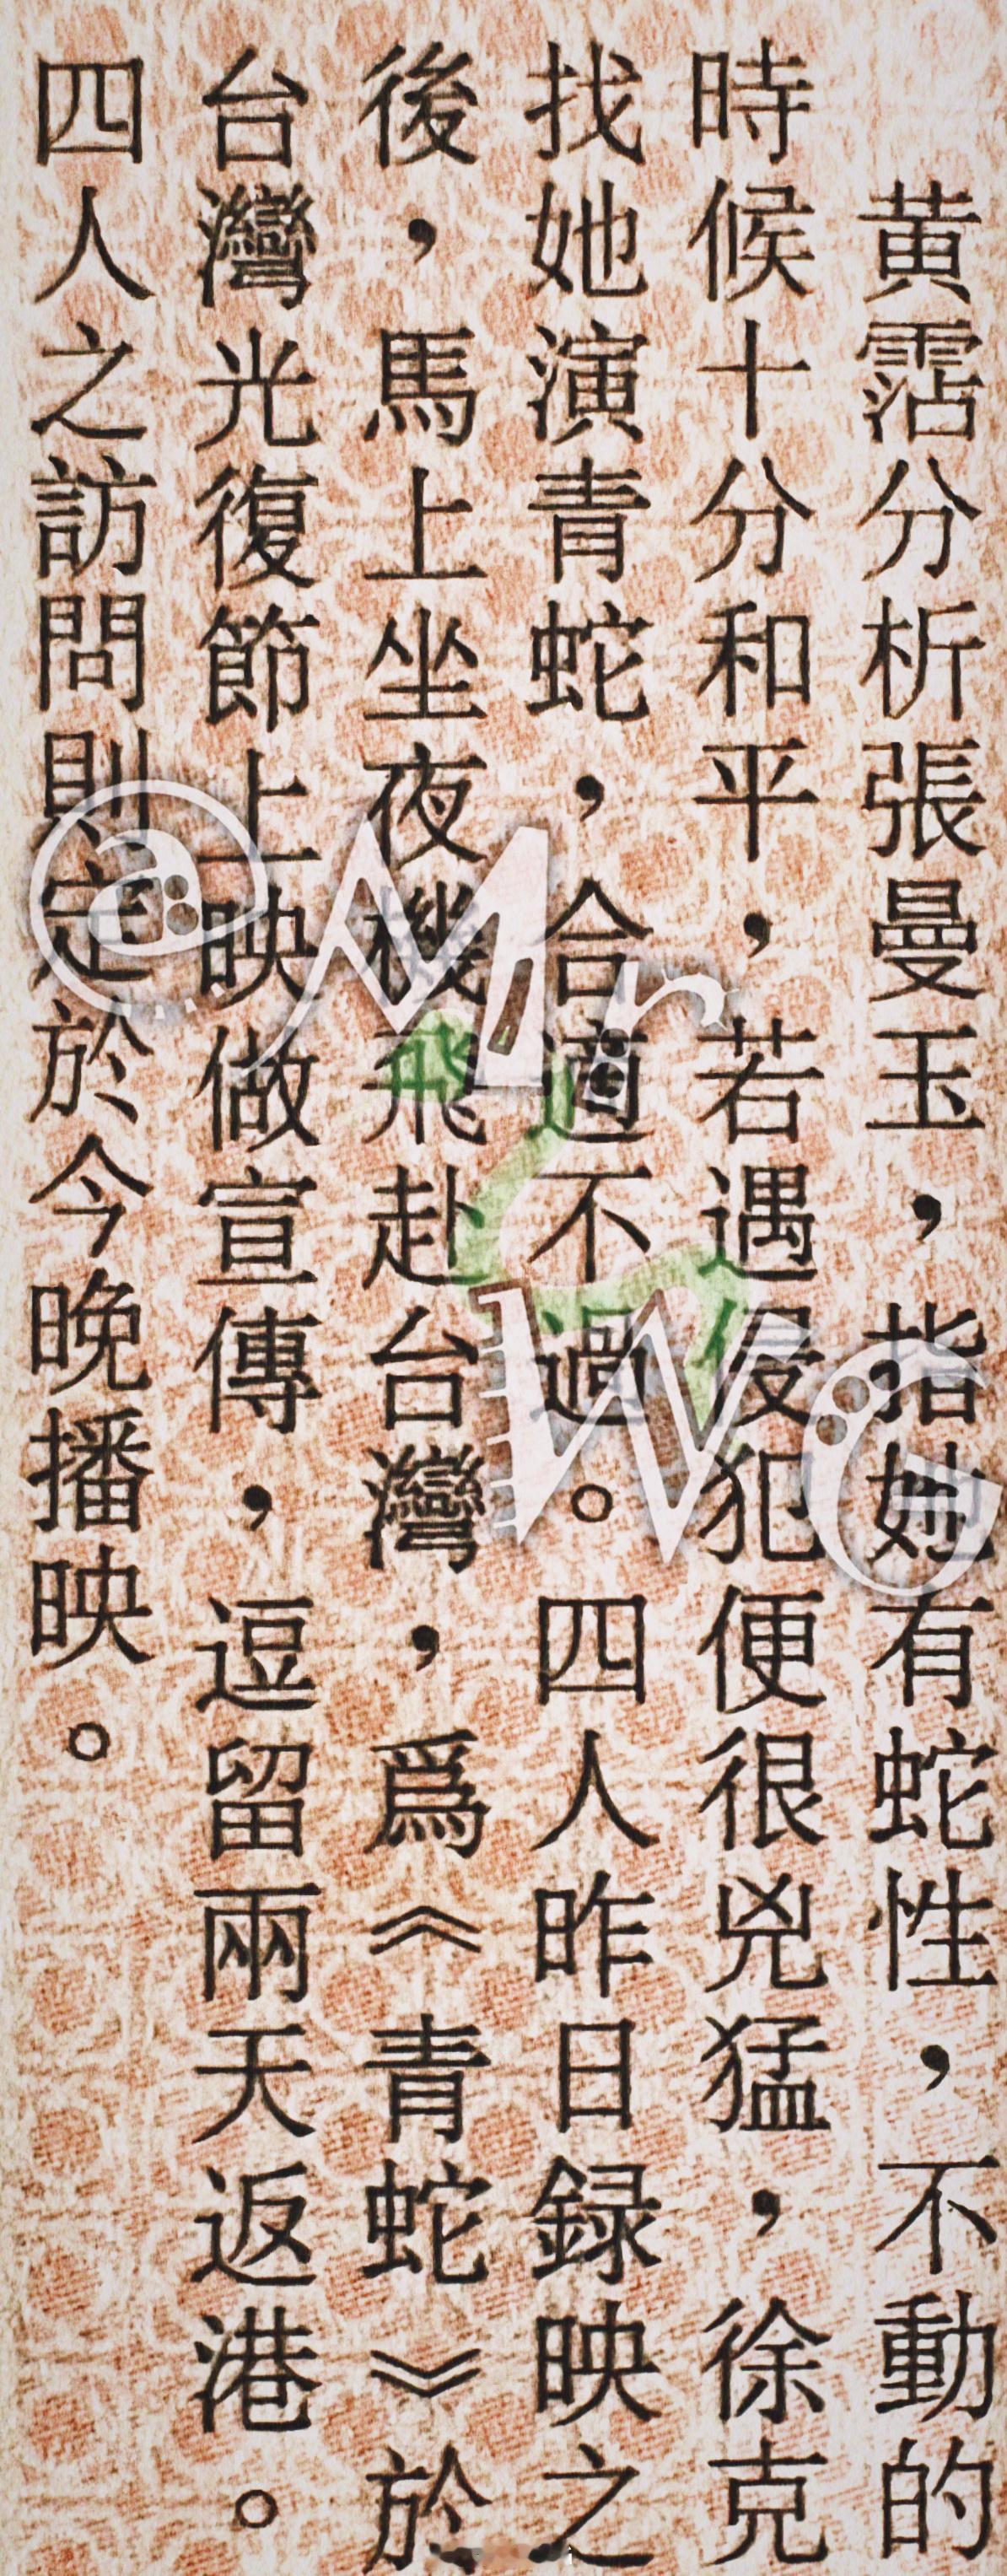 黃霑分析張曼玉，指她有蛇性，不動的
時候十分和平，若遇侵犯便很兇猛，徐克
找她演青蛇，合適不過。四人昨日録映之
後，馬上坐夜機飛赴台灣，爲《青蛇》於
台灣光復節上映做宣傳，逗留兩天返港。
四人之訪問則定於今晚播映。
@Mr
WG